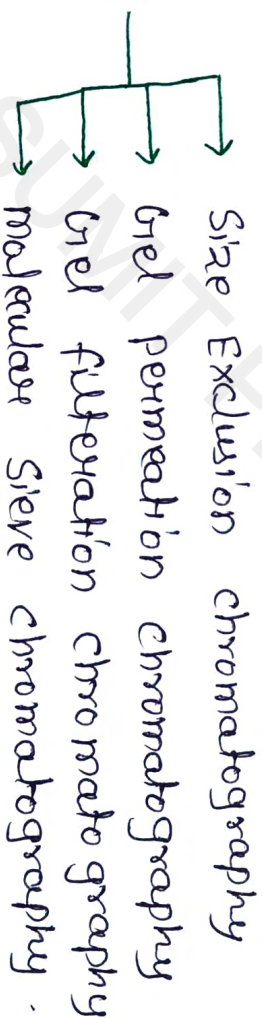 Size Exclusion chromatography
Gel permeation chromatography
Gel filteration chromatography
molecular Sieve chromatography.
SUMIT